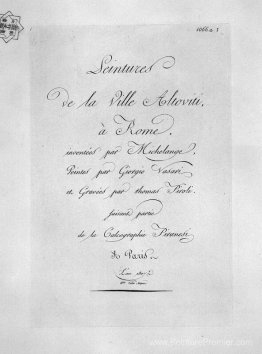 1066a 1
Peintures
de la Ville Altoviti,
à Rome,
inventées par Michelange,
Peintes par Giorgio Vasari
et Gravées par thomas Piroli.
faisant partie
de la Calcographie Piranesi
à Paris
L'an 1807